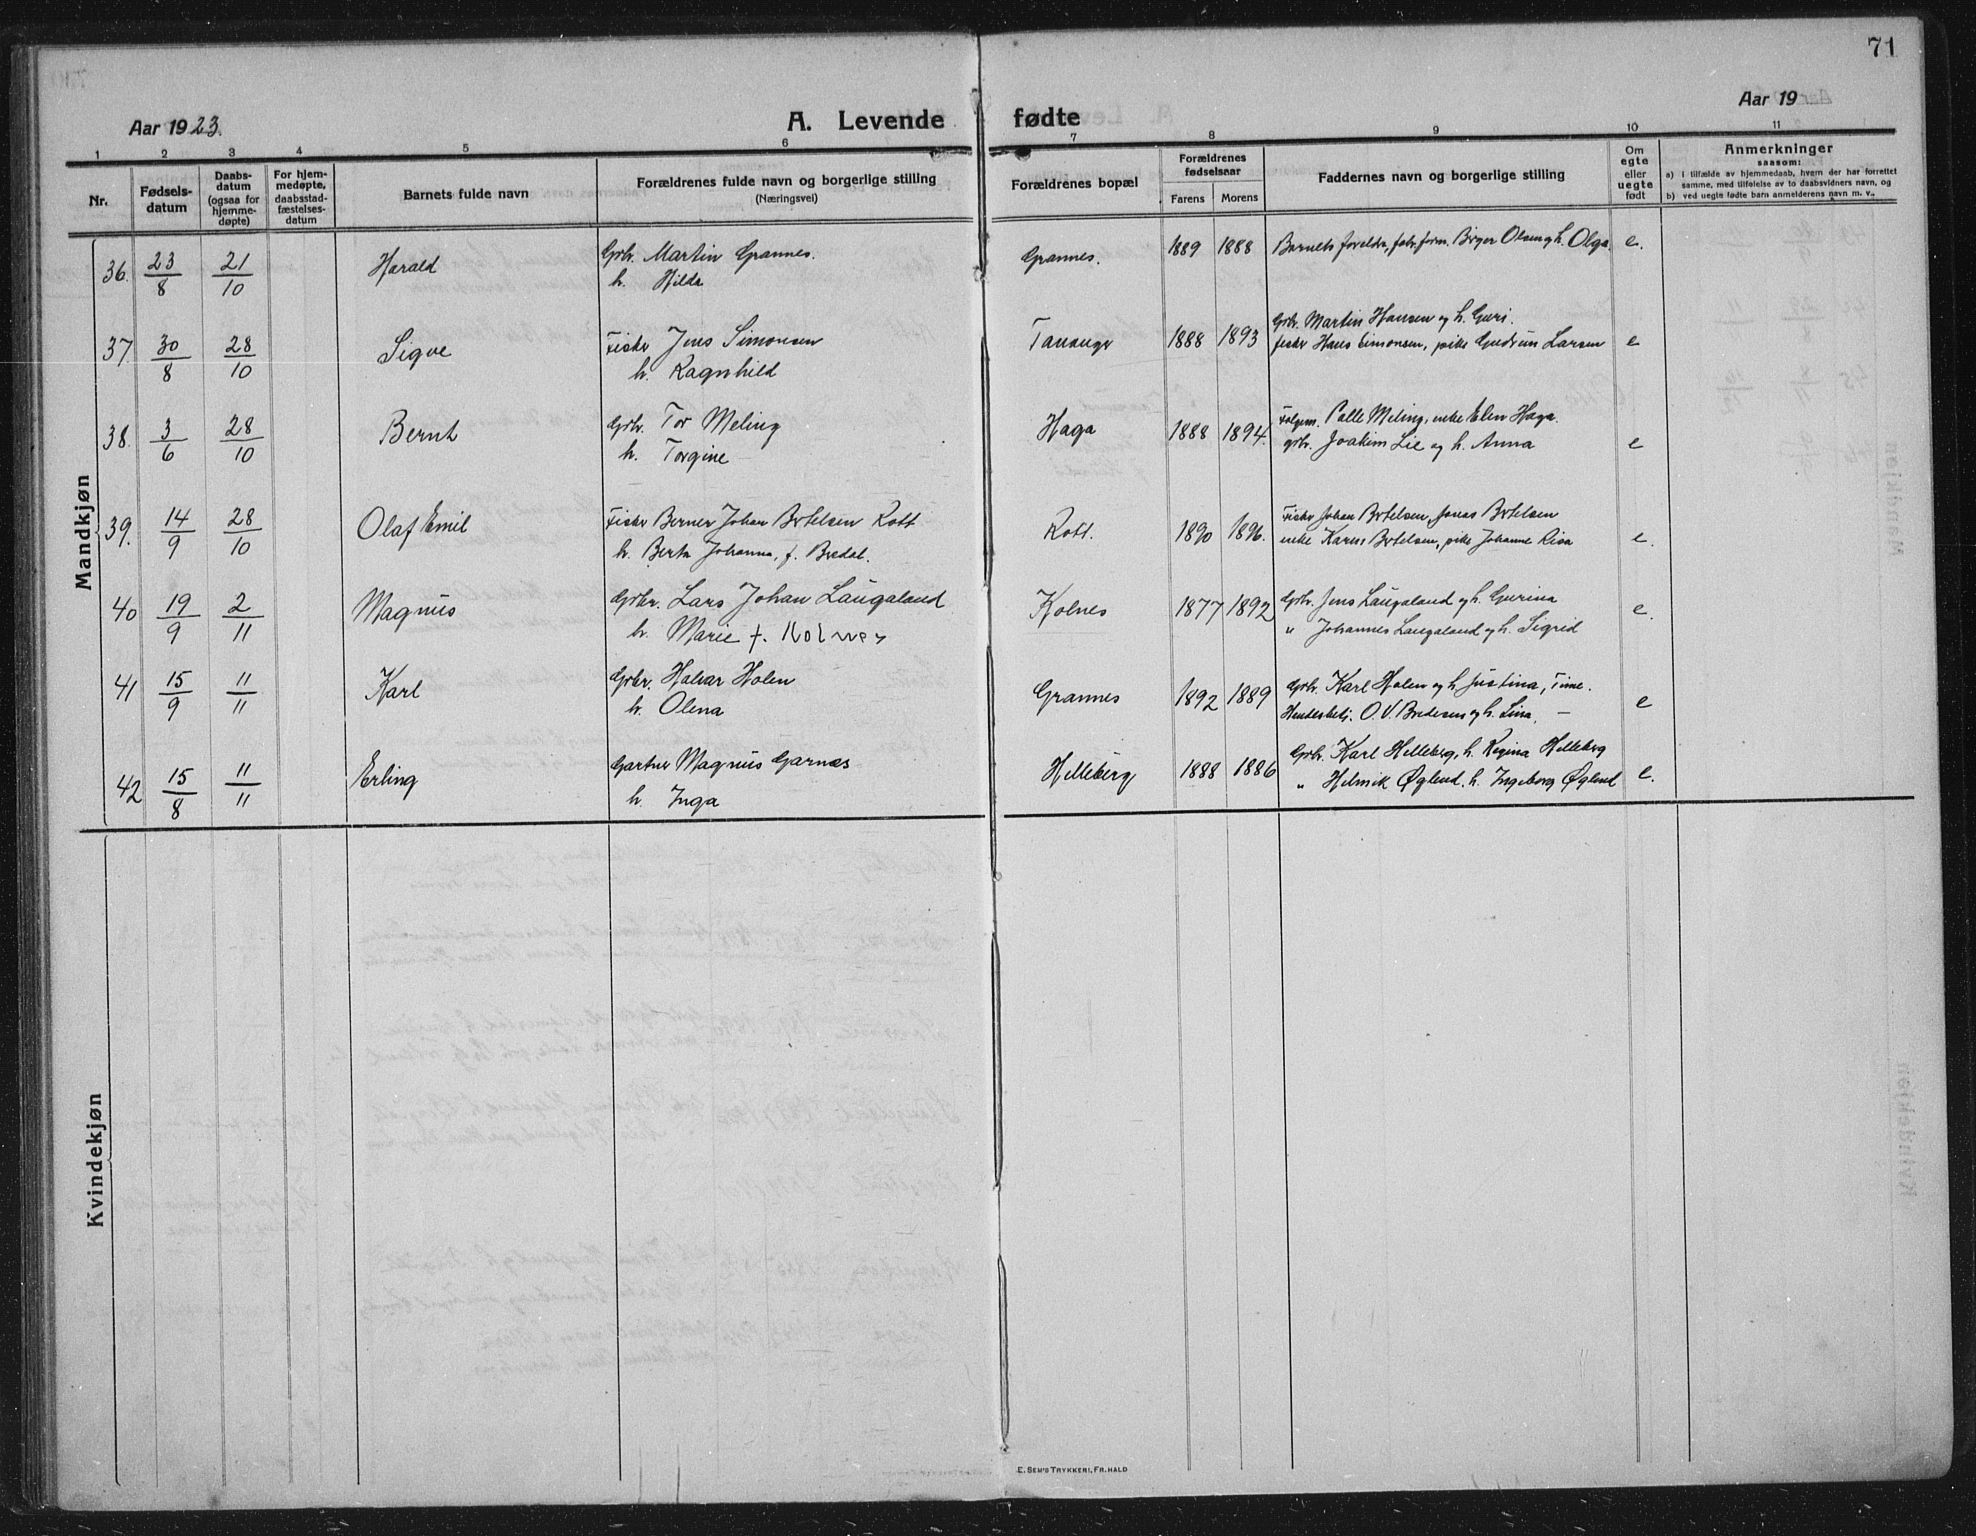 71
Aar 1923.
A. Levende fødte
Aar 19
1 2 3 4 5 6 7 8 9 10 11
Nr.
Fødsels-
datum
Daabs-
datum
(ogsaa for
hjemme-
døpte)
For hjem-
medøpte,
daabsstad-
fæstelses-
datum
Barnets fulde navn
Forældrenes fulde navn og borgerlige stilling
(Næringsvei)
Forældrenes bopæl
Forældrenes
fødselsaar
Farens Morens
Faddernes navn og borgerlige stilling
Om
egte
eller
uegte
født
Anmerkninger
saasom:
a) i tilfælde av hjemmedaab, hvem der har forrettet
samme, med tilføielse av to daabsvidners navn, og
b) ved uegte fødte barn anmelderens navn m. v.,
Mandkjøn
36. 23/8 21/10 Harald Gbr. Martin Grannes. Grannes. 1889 1888 Barnets foreldre, fabr.form. Birger Olsen og h. Olga. e.
h. Hilda
37. 30/8 28/10 Sigve Fisker Jens Simonsen Tananger 1888 1893 Gbr. Martin Hansen og h. Guri.
h. Ragnhild fisker Hans Simonsen, pike Gudrun Larsen e
38. 3/6 28/10 Bernt Gbr. Tor Meling Haga 1888 1894. Følgem. Palle Meling, enke Elen Haga.
h. Torgine gbr. Joakim Lie og h. Anna e
39. 14/9 28/10 Olaf Emil Fisker Berner Johan Bertelsen Rott Rott. 1890 1896. Fisker Johan Bertelsen, Jonas Bertelsen
h. Berta Johanna, f. Bredal. enke Karen Bertelsen, pike Johanne Risa e.
40 19/9 2/11 Magnus Gbr. Lars Johan Laugaland Kolnes 1877 1892 Gbr. Jens Laugaland og h. Gurina e.
h. Marie f. Kolnes " Johannes Laugaland og h. Sigrid
41 15/9 11/11 Karl Gbr. Halvar Holen Grannes 1892 1889 Gbr. Karl Holen og h. Justina, Time.
h. Olena Handelsbetj. O. V. Bredesen og h. Lina. — e
42 15/8 11/11 Erling Gartner Magnus Garnæs Helleberg 1888 1886 Gbr. Karl Helleberg, h. Regina Helleberg
h. Inga " Helmik Øglend, h. Ingeborg Øglend e.
Kvindekjøn
E. SEM'S TRYKKERI, FR.HALD